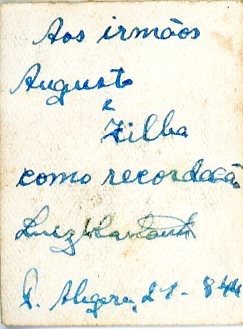 Aos irmãos
Augusto
e
Zilba
como recordação
Luiz
P. Alegre, 21-8-44